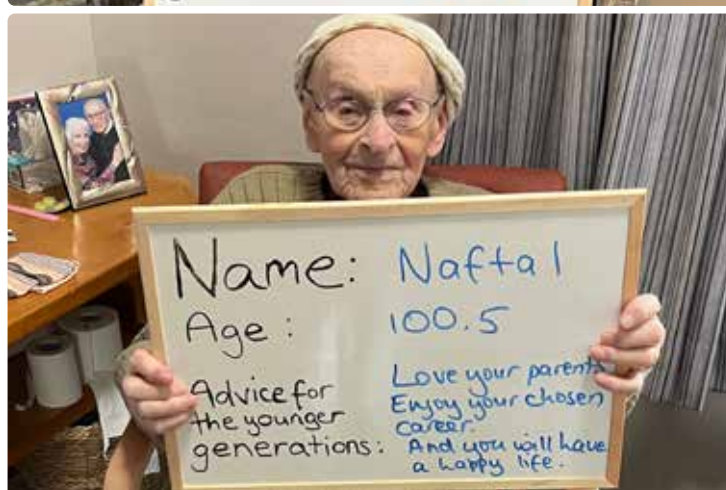 Name: Naftal
Age: 100.5
Advice for
the younger
generations:
Love your parents
Enjoy your chosen
career.
And you will have
a happy life.